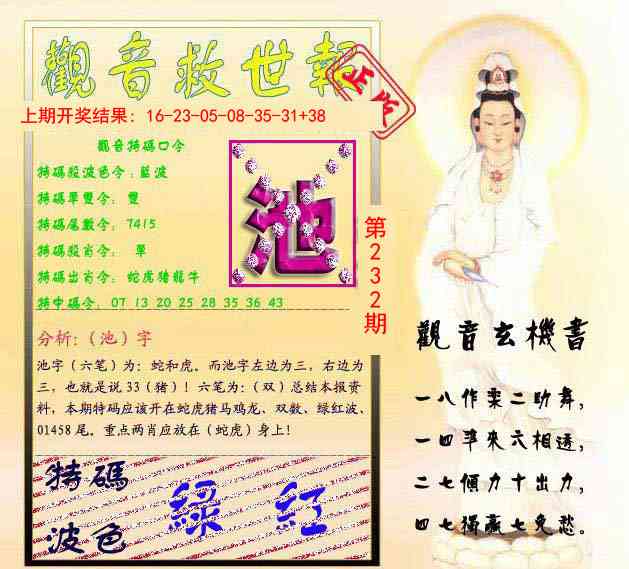 觀音救世報
正版
上期开奖结果：16-23-05-08-35-31+38
觀音特碼口令
特碼段波色令：藍波
特碼單雙令： 雙
特碼尾數令： 7415
特碼段肖令： 單
特碼出肖令： 蛇虎猪龍牛
特中碼令： 07 13 20 25 28 35 36 43
池
第232期
分析:（池）字
池字（六笔）为：蛇和虎。而池字左边为三，右边为
三，也就是说 33（猪）！六笔为:（双）总结本报资
料，本期特码应该开在蛇虎猪马鸡龙、双数、绿红波、
01458 尾。重点两肖应放在（蛇虎）身上！
特碼
波色
綠 紅
觀音玄機書
一八作樂二助舞，
一四準來六相逢，
二七傾力十出力，
四七獨贏七免愁。